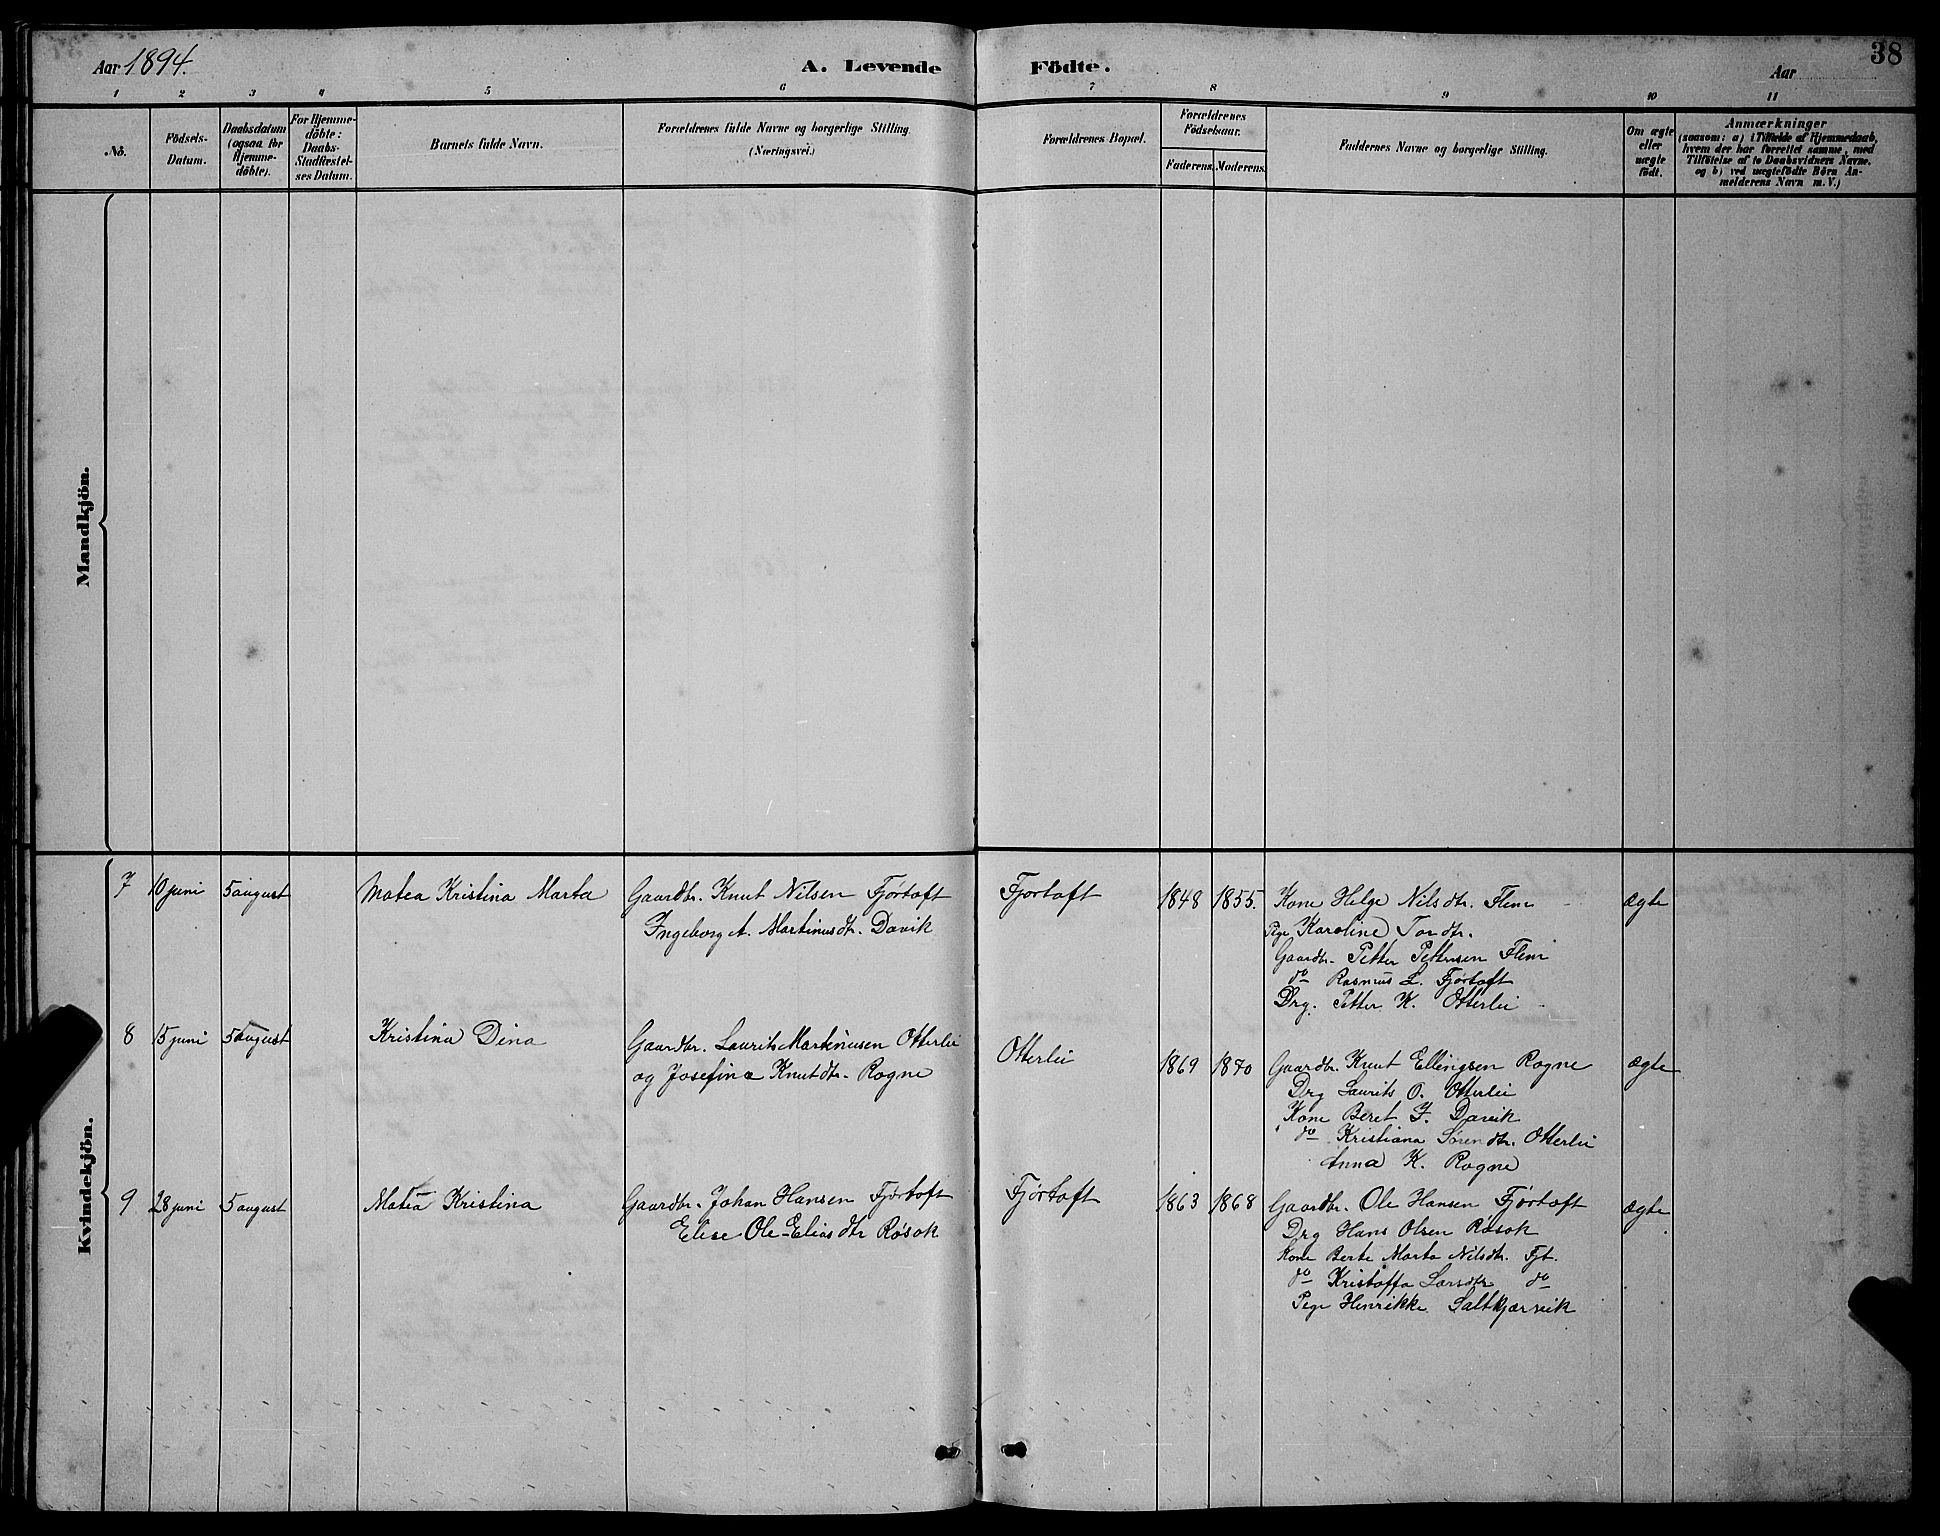 Aar 1894.
A. Levende Födte.
Aar
38
1 2 3 4 5 6 7 8 9 10 11
No.
Födsels-
Datum.
Daabsdatum
(ogsaa for
Hjemme-
döbte).
For Hjemme-
döbte:
Daabs-
Stadfæstel-
ses Datum.
Barnets fulde Navn.
Forældrenes fulde Navne og borgerlige Stilling.
(Næringsvei.)
Forældrenes Bopæl.
Forældrenes
Födselsaar.
Faderens. Moderens.
Faddernes Navne og borgerlige Stilling.
Om ægte
eller
uægte
födt.
Anmærkninger
(saasom: a) i Tilfælde af Hjemmedaab,
hvem der har forrettet samme, med
Tilföielse af to Daabsvidners Navne.
og b) ved uægtefödte Börn An-
melderens Navn m. V.)
Mandkjön.
Kvindekjön.
7 10 juni 5 august Matea Kristina Marta Gaardbr. Knut Nilsen Fjørtoft Fjørtoft 1848 1855. Kone Helge Nilsdtr. Flem ægte
Ingeborg A. Martinusdtr. Davik Pige Karoline Tordtr.
Gaardbr. Petter Pettersen Flem
do Rasmus L. Fjørtoft
Drg. Petter K. Otterlei
8 15 juni 5 august Kristina Dina Gaardbr. Laurits Martinusen Otterlei Otterlei 1869 1870 Gaardbr. Knut Ellingsen Rogne ægte
og Josefina Knutdtr. Rogne Drg Laurits O. Otterlei
Kone Beret J. Davik
do Kristiana Sørendtr. Otterlei
Anna K. Rogne
9 28 juni 5 august Matea Kristina Gaardbr. Johan Hansen Fjørtoft Fjørtoft 1863 1868 Gaardbr. Ole Hansen Fjørtoft ægte
Elise Ole-Eliasdtr Røsok Drg Hans Olsen Røsok
Kone Berte Marta Nilsdtr. Fjt.
do Kristoffa Larsdtr do
Pige Henrikke Saltkjærvik